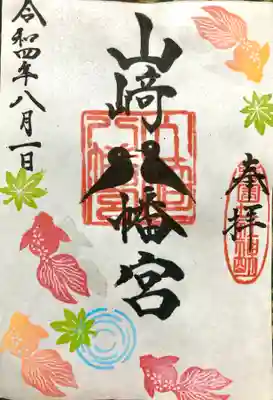 奉拝
山﨑八幡宮
令和四年八月一日